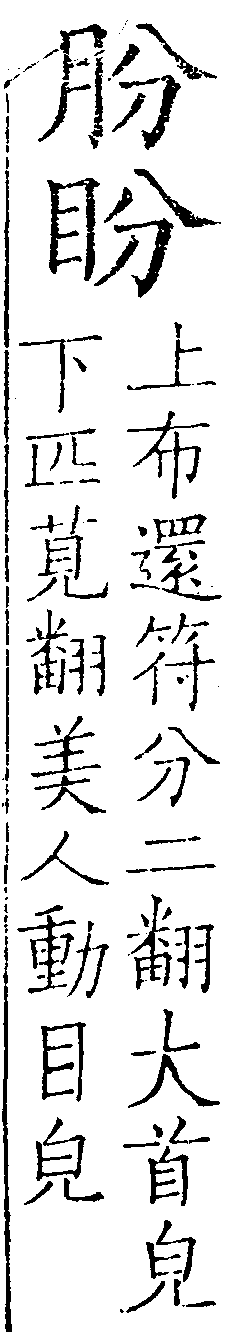 肦盼
上布還符分二翻大首皃
下匹莧翻美人動目皃